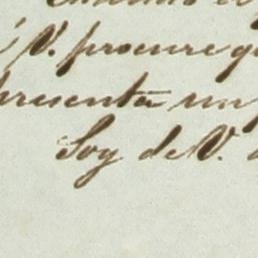 á V. procure q
presenta un
Soy de V.